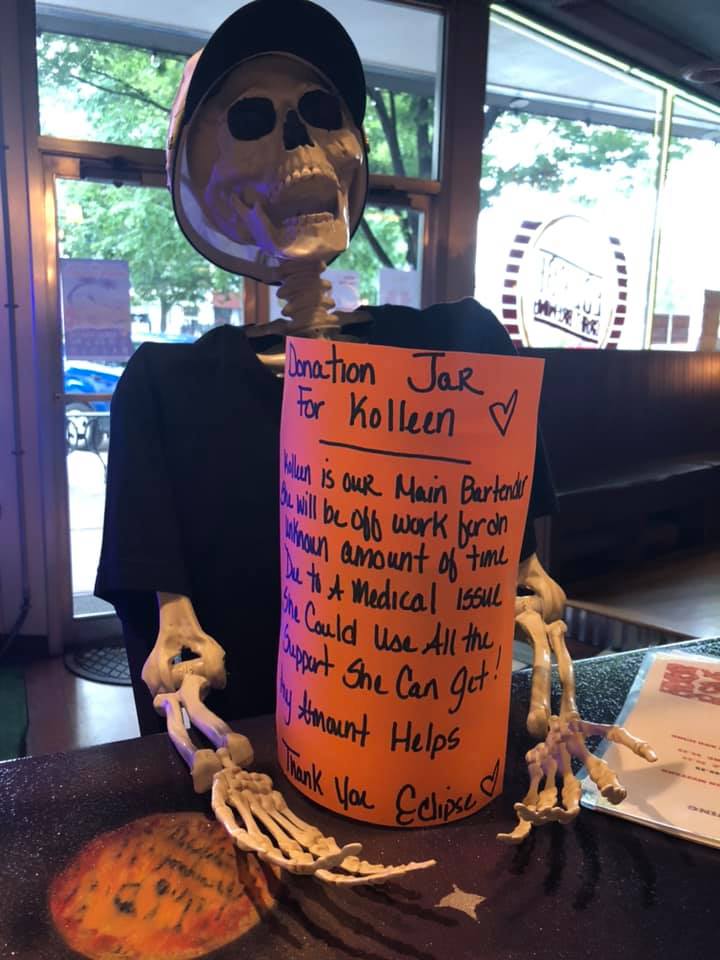 Donation Jar
For Kolleen
Kolleen is our Main Bartender
She will be off work for an
unknown amount of time
Due to A Medical Issue
She Could Use All the
Support She Can get!
Any Amount Helps
Thank You Eclipse